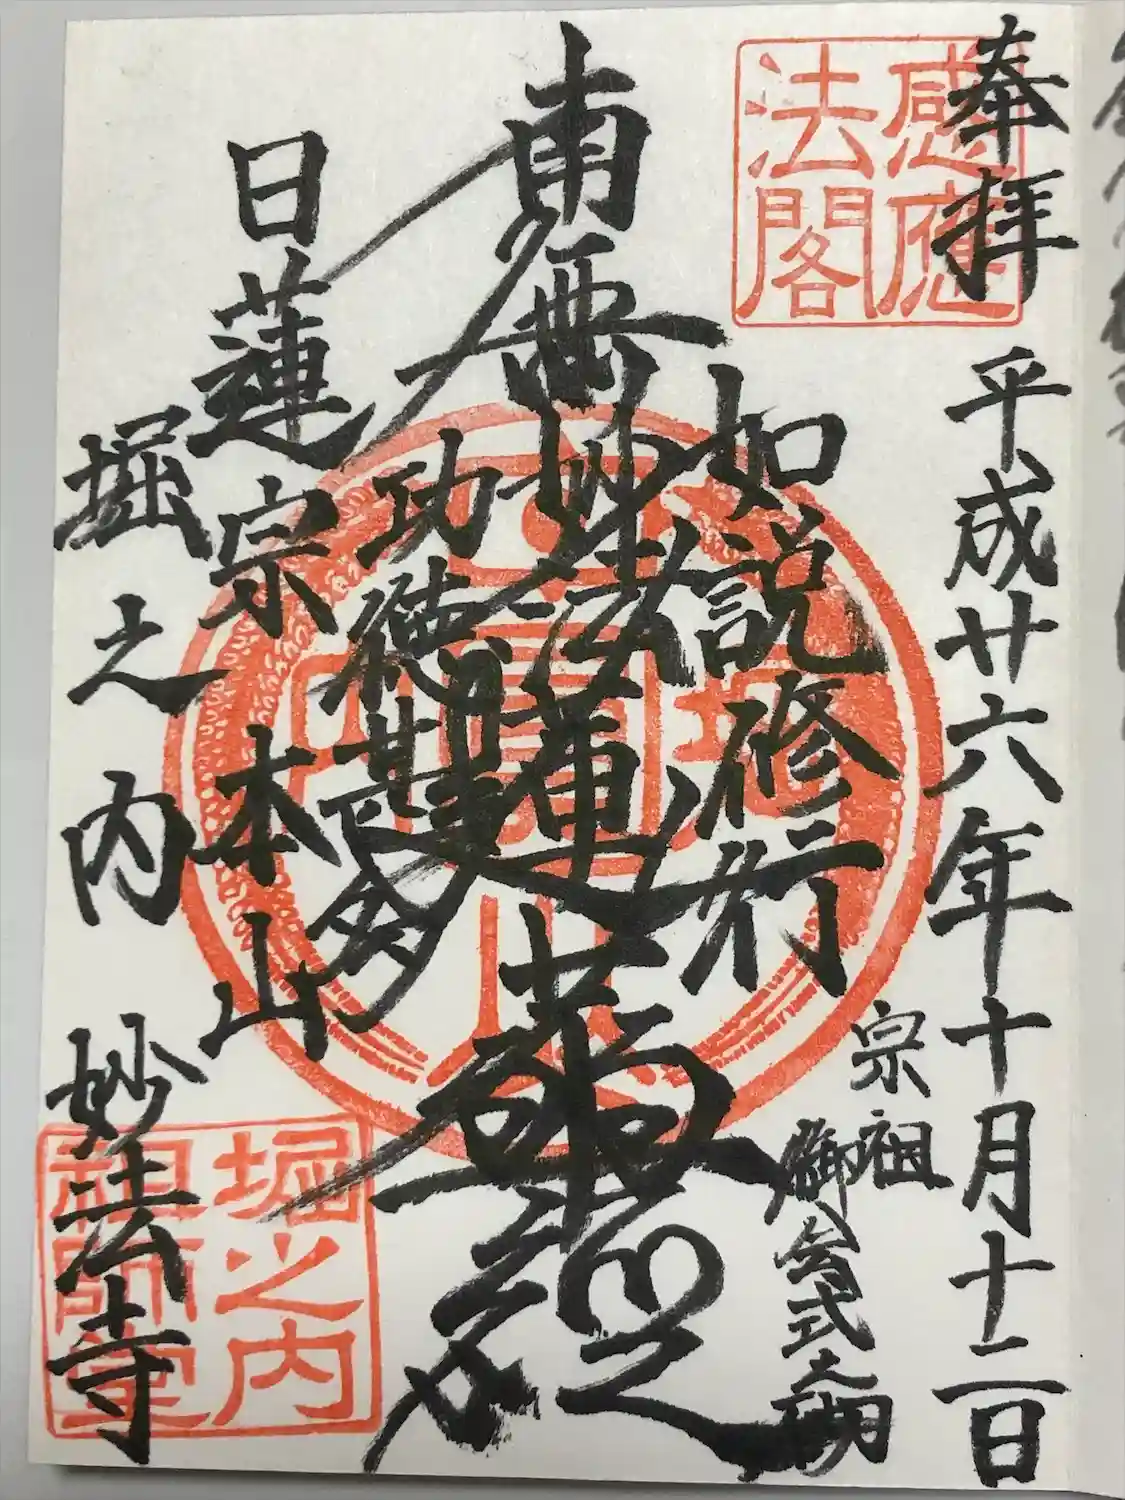 奉拝
平成廿六年十月十二日
感應
法閣
宗祖
御会式
如説修行
南無妙法蓮華経
功徳甚多
日蓮宗本山
堀之内妙法寺
堀之内
祖師堂